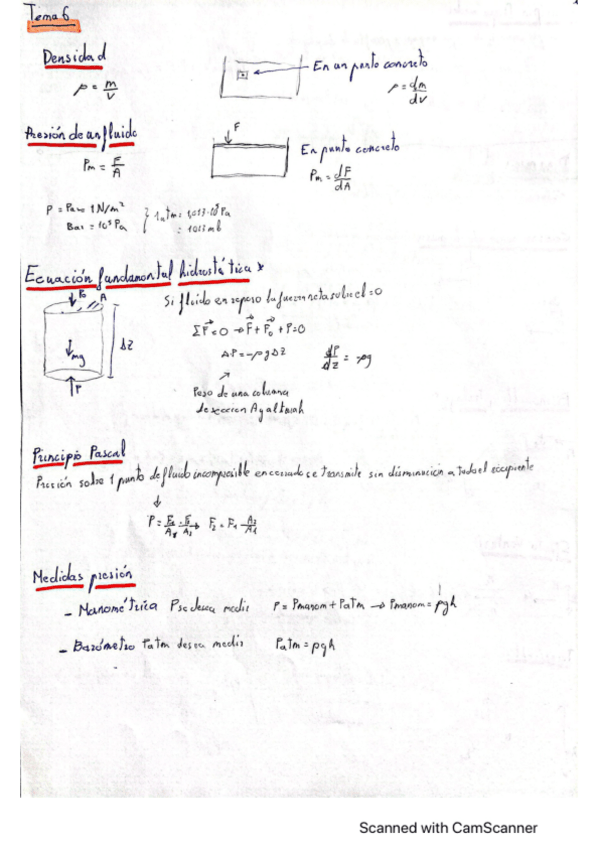 Tema 6
Densidad
ρ = m/V
En un punto concreto
ρ = dm/dV
Presión de un fluido
Pm = F/A
F
En punto concreto
Pm = dF/dA
P = Pasc = 1 N/m²
Bar = 10⁵ Pa
1 atm = 1,013·10⁵ Pa
= 1013 mb
Ecuación fundamental hidrostática *
F₀ A
mg
P
ΔZ
Si fluido en reposo la fuerza neta sobre el = 0
ΣF = 0 → F + F₀ + P = 0
ΔP = -ρgΔZ
dP/dZ = -ρg
Peso de una columna
de seccion A y altura h
Principio Pascal
Presión sobre 1 punto de fluido incompresible encerrado se transmite sin disminucion a todo el recipiente
P = F₁/A₁ = F₂/A₂ → F₂ = F₁ A₂/A₁
Medidas presión
- Manométrica P se desea medir P = Pmanom + Patm → Pmanom = ρgh
- Barómetro Patm desea medir Patm = ρgh
Scanned with CamScanner